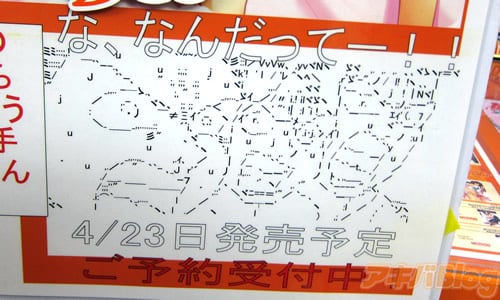 な、なんだってー！！
うう手ん
4/23日発売予定
ご予約受付中！
アキバBlog